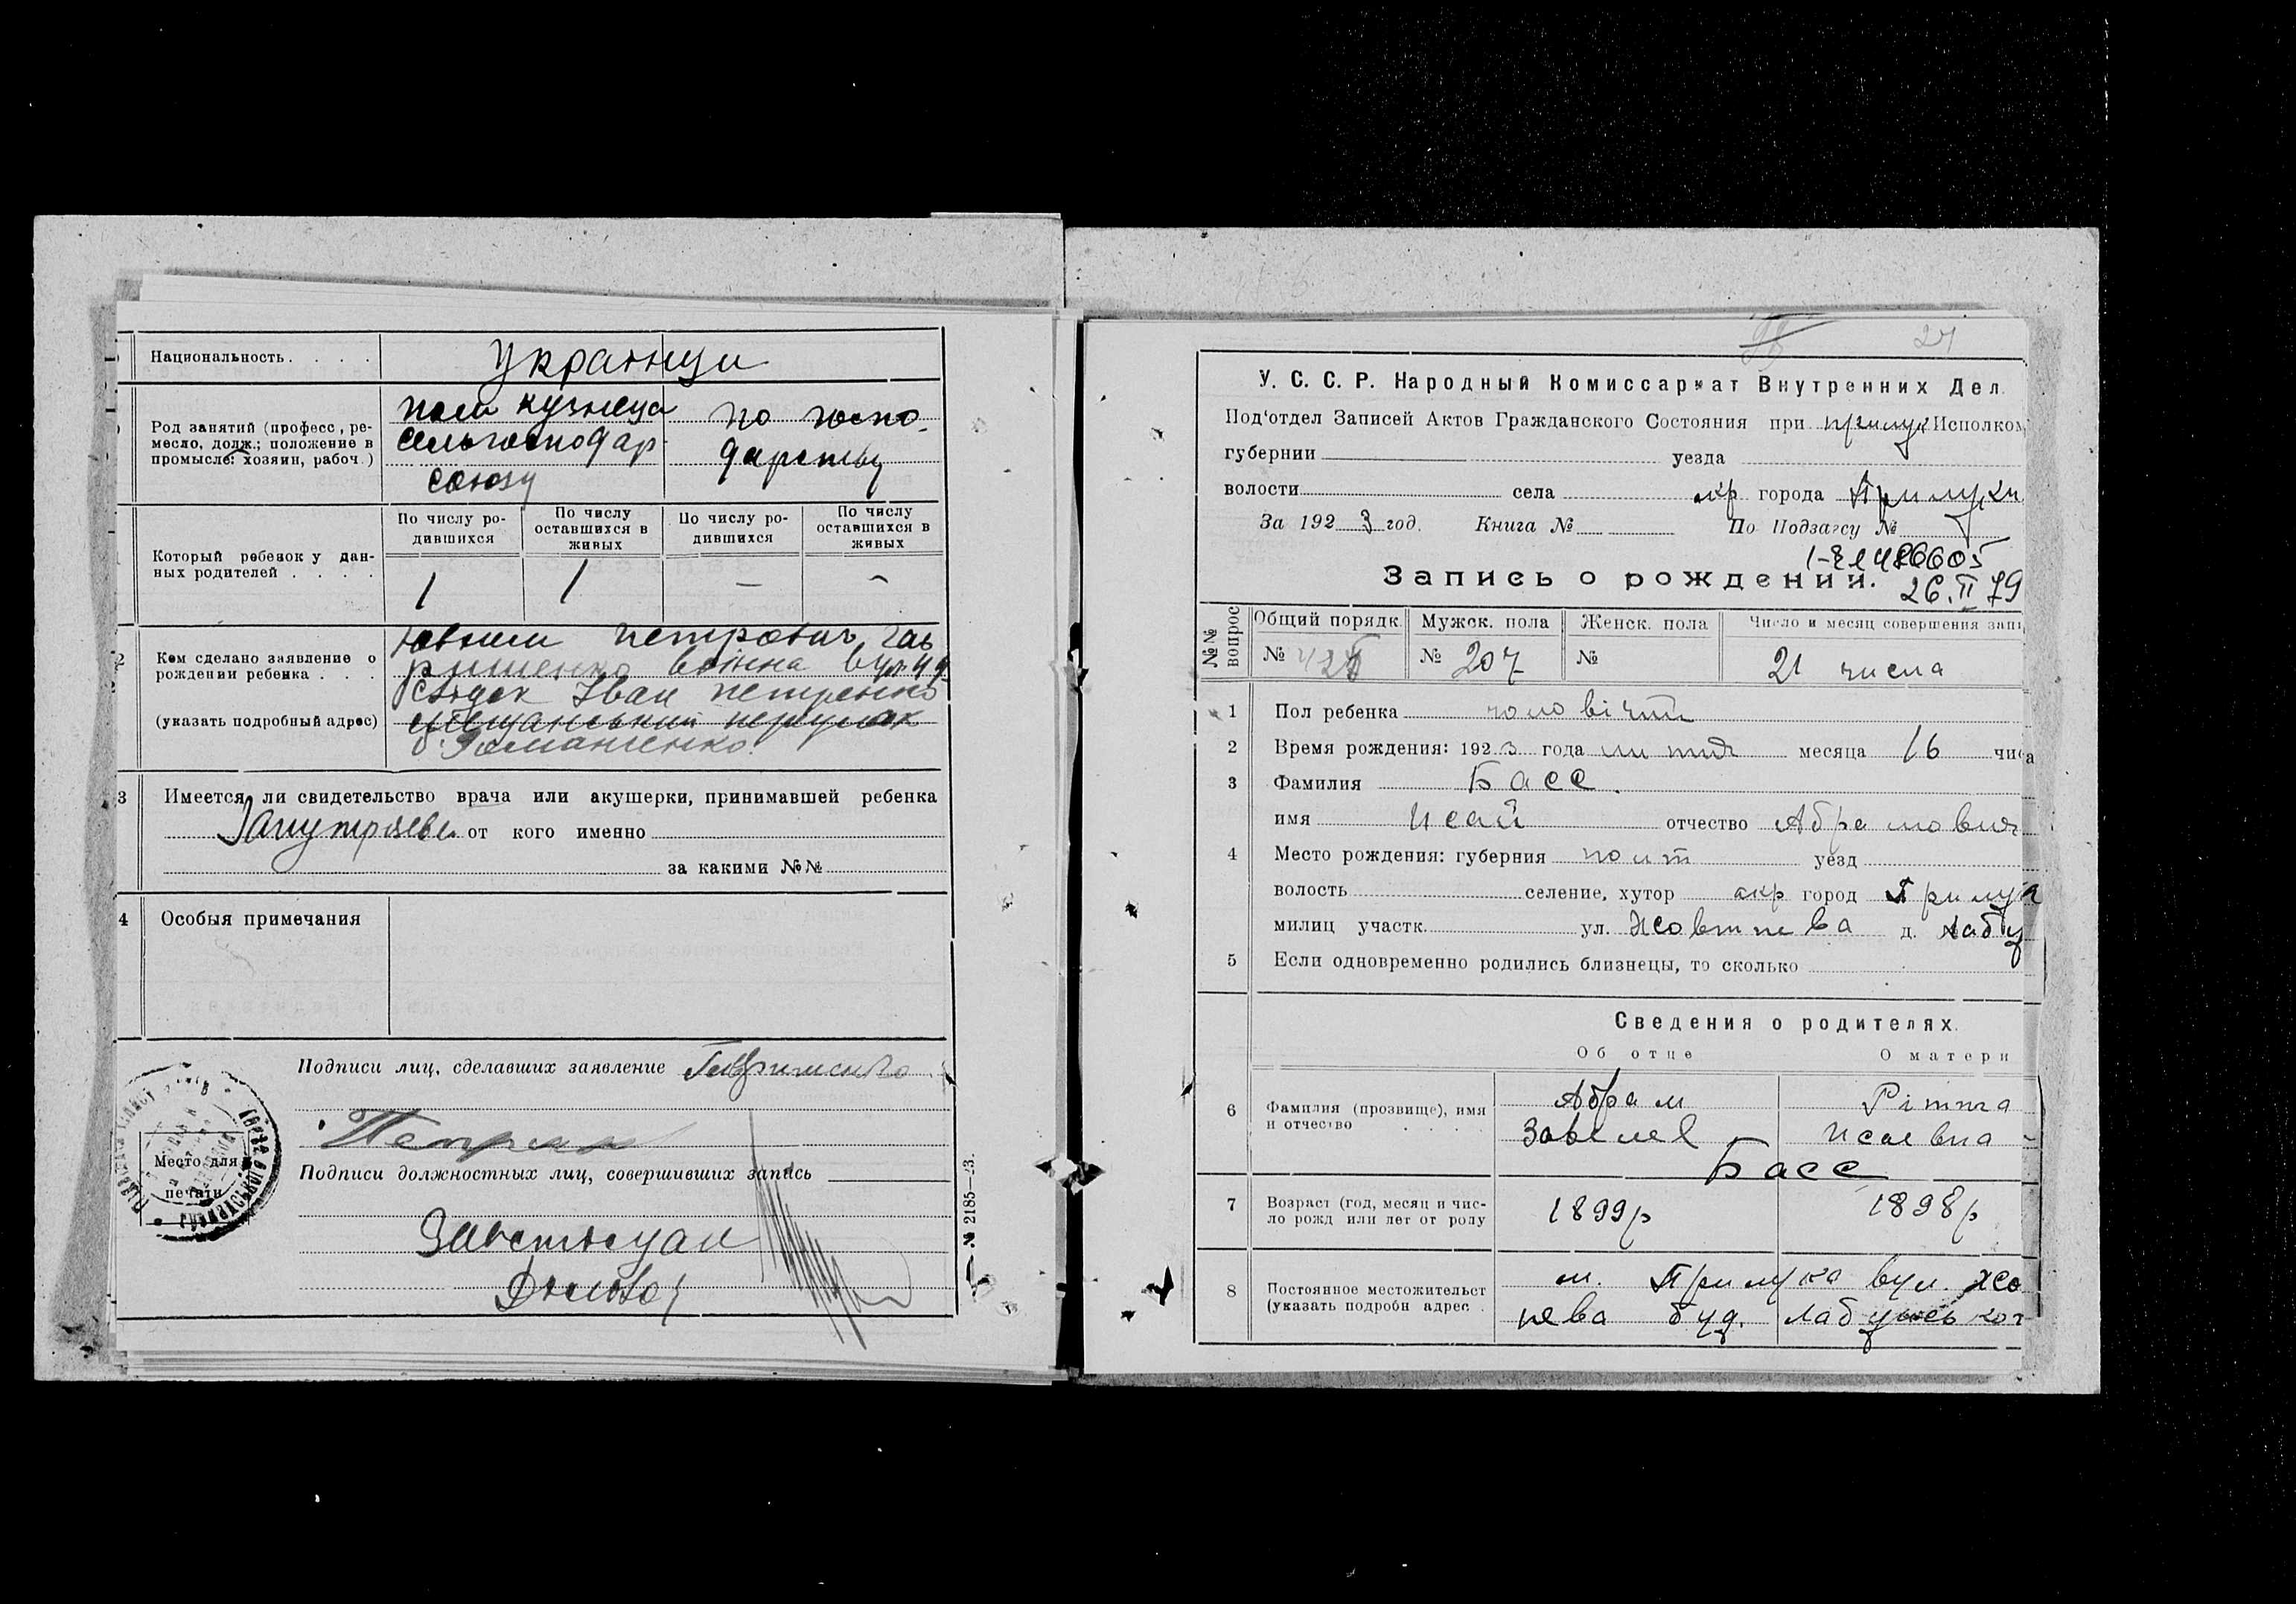 Национальность. . . . . Украинци
Род занятий (професс, ре-
месло, долж.; положение в
промысле: хозяин, рабоч.)
сельгосподар
союзу
по госпо-
дарству
Который ребенок у дан-
ных родителей . . . .
По числу ро-
дившихся
По числу
оставшихся в
живых
По числу ро-
дившихся
По числу
оставшихся в
живых
1 1 — —
2 Кем сделано заявление о
рождении ребенка . . .
(указать подробный адрес)
петрович
Іван петренко
б. Романченко
3 Имеется ли свидетельство врача или акушерки, принимавшей ребенка
от кого именно
за какими №№
4 Особыя примечания
Подписи лиц, сделавших заявление
Место для
печати
Подписи должностных лиц, совершивших запись
№ 2185—23.
27
У. С. С. Р. Народный Комиссариат Внутренних Дел.
Под'отдел Записей Актов Гражданского Состояния при прилуц Исполком
губернии уезда
волости села окр города Прилуки
За 1923 год. Книга № По Подзагсу №
Запись о рождении.
26.II 79
№№ вопрос
Общий порядк. Мужск. пола Женск. пола Число и месяц совершения запи
№ № 207 № 21 числа
1 Пол ребенка чоловічий
2 Время рождения: 1923 года месяца 16 числа
3 Фамилия Басс.
имя Исай отчество Абрамович
4 Место рождения: губерния полт уезд
волость селение, хутор окр город Прилука
милиц участк. ул. Жовтнева д. Лабу
5 Если одновременно родились близнецы, то сколько
Сведения о родителях.
Об отце О матери
6 Фамилия (прозвище), имя
и отчество . . . .
Абрам Рімма
Исаевна
Басс
7 Возраст (год, месяц и чис-
ло рожд или лет от роду
1899р 1898р
8 Постоянное местожительст
(указать подробн адрес .
м. Прилука вул. Жо
нева буд.